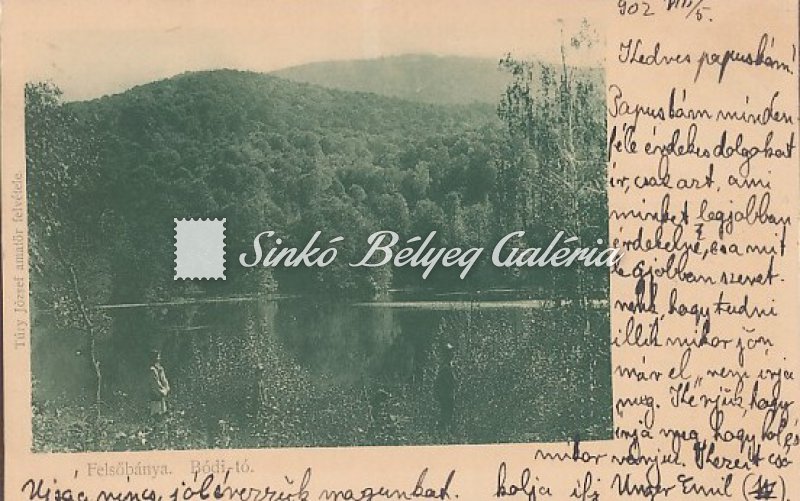 902 VIII/5.
Kedves papuskám!
Papuskám minden-
féle érdekes dolgokat
ír, csak azt, ami
minket legjobban
érdekelne, s a mit
legjobban szeret-
nénk, hogy tudni
illik mikor jön
már el, nem írja
meg. Kérjük, hogy
írja meg, hogy hol és
mikor várjuk. Kezeit csó-
kolja ifj Unger Emil
Ujság nincs, jól érezzük magunkat.
Túry József amatőr felvétele.
Felsőbánya. Bódi-tó.
Sinkó Bélyeg Galéria